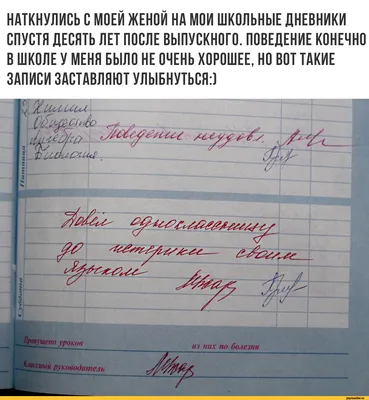 НАТКНУЛИСЬ С МОЕЙ ЖЕНОЙ НА МОИ ШКОЛЬНЫЕ ДНЕВНИКИ
СПУСТЯ ДЕСЯТЬ ЛЕТ ПОСЛЕ ВЫПУСКНОГО. ПОВЕДЕНИЕ КОНЕЧНО
В ШКОЛЕ У МЕНЯ БЫЛО НЕ ОЧЕНЬ ХОРОШЕЕ, НО ВОТ ТАКИЕ
ЗАПИСИ ЗАСТАВЛЯЮТ УЛЫБНУТЬСЯ:)
Химия
Общество
Алгебра
Биология
Поведение неудов.
Пятница
Довёл одноклассницу
до истерики своим
языком
Суббота
Пропущено уроков
из них по болезни
Классный руководитель